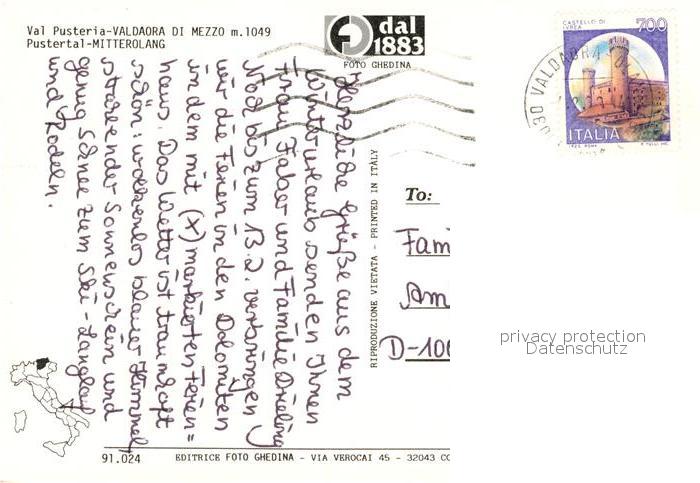 Val Pusteria-VALDAORA DI MEZZO m.1049
Pustertal-MITTEROLANG
dal
1883
FOTO GHEDINA
CASTELLO DI
IVREA
700
ITALIA
030 VALDAORA
Herzliche Grüße aus dem
Winterurlaub senden Ihnen
Frau Faber und Familie
Noch bis zum 13.2. verbringen
wir die Ferien in den Dolomiten
in dem mit (X) markierten Ferien=
haus. Das Wetter ist traumhaft
schön: wolkenlos blauer Himmel,
strahlender Sonnenschein und
genug Schnee zum Ski-Langlauf
und Rodeln.
RIPRODUZIONE VIETATA - PRINTED IN ITALY
To:
Fam
Am
D-106
privacy protection
Datenschutz
91.024
EDITRICE FOTO GHEDINA - VIA VEROCAI 45 - 32043 CO